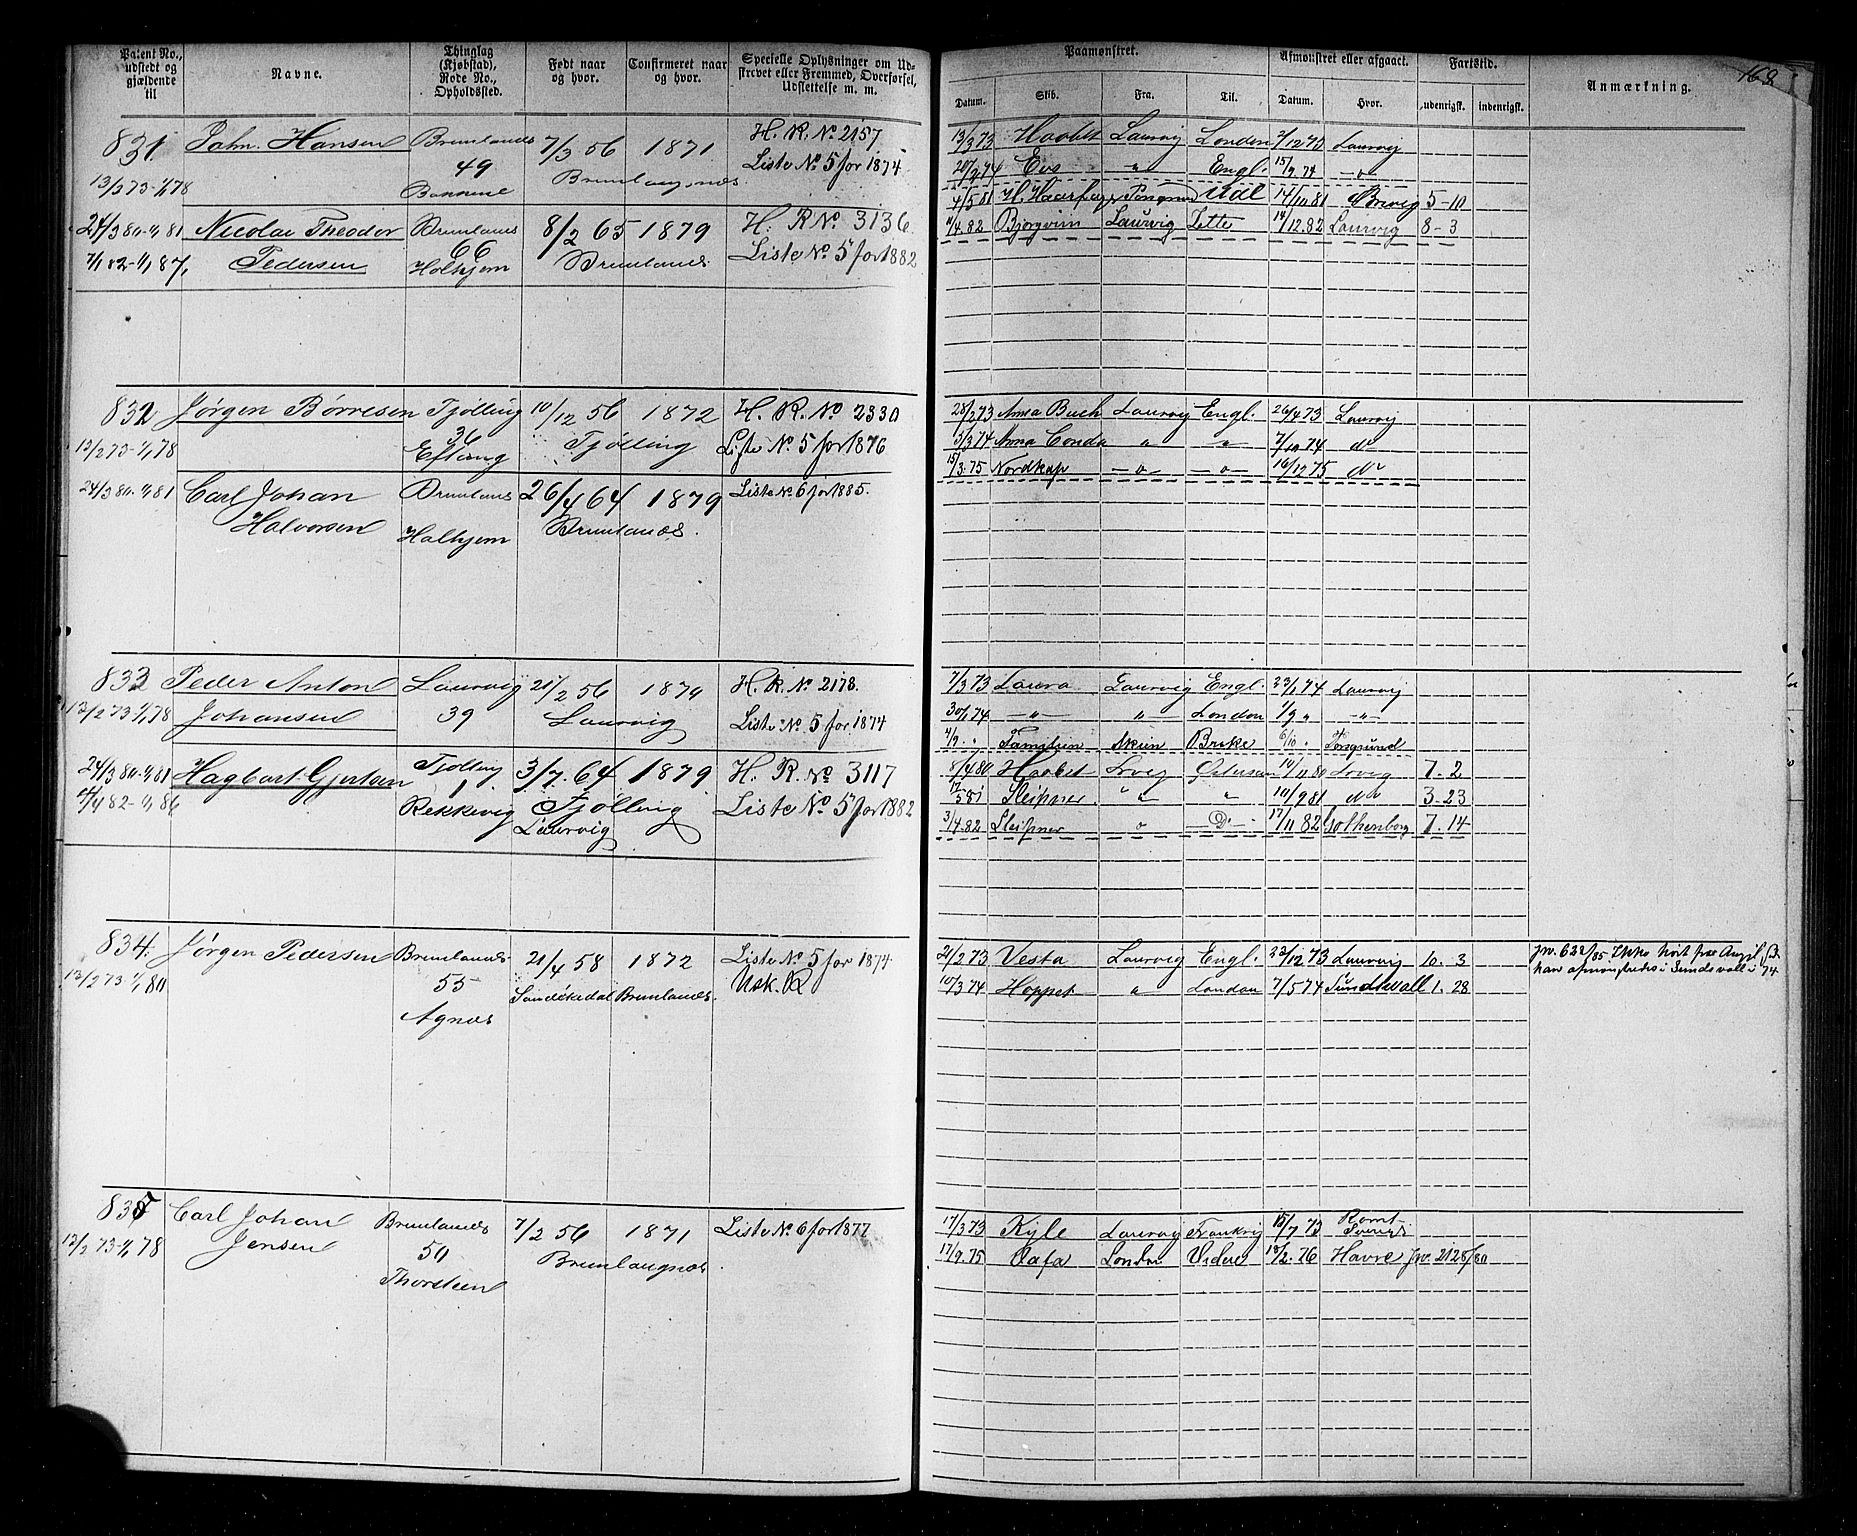 Patent No., udstedt og gjældende til
Navne.
Thinglag (Kjøbstad), Rode No., Opholdssted.
Født naar og hvor.
Confirmeret naar og hvor.
Specielle Oplysninger om Udskrevet eller Fremmed, Overførsel, Udslettelse m. m.
Paamønstret.
Datum. Skib. Fra. Til.
Afmønstret eller afgaaet.
Datum. Hvor.
Fartstid.
udenrigsk. indenrigsk.
Anmærkning.
168
831 John Hansen Brunlanes 7/3 56 1871 H. R. No 2157
13/2 73-1/1 78 49 Brunlangnæs Liste No 5 for 1874
24/3 80-1/1 81 Nicolai Theodor Brunlanes 8/2 65 1879 H. R No 3136
7/1 82-1/1 87, Pedersen 66 Holhjem Brunlanes Liste No 5 for 1882
13/3 73 Haabet Laurvig London 2/12 73 Laurvig
20/2 74 Eos " Engl. 15/9 74 -o-
4/5 81 Udl 14/10 81 Brevig 5-10
11/4.82 Bjorgvin Laurvig 14/12.82 Laurvig 8-3
832 Jørgen Børresen Tjølling 10/12 56 1872 H. R. No 2330
13/2 73-1/1 78 36 Eftang Tjølling Liste No 5 for 1876
24/3 80-1/1 81 Carl Johan Brunlanes 26/4 64 1879 Liste No 6 for 1885.
Halvorsen Holhjem Brunlanes.
28/2 73 Anna Buch Laurvig Engl. 26/4 73 Laurvig
5/3 74 Anna " " 7/10 74 do
15/3.75 Nordkap -o- -o- 16/12 75 do
833 Peder Anton Laurvig 21/2 56 1870 H. R. No 2178.
13/2 73-1/1 78 Johansen 39 Laurvig Liste No 5 for 1874
24/3 80-1/1 81 Hagbart Gjertsen Tjølling 3/7.64 1879 H. R. No 3117
4/4 82-1/1 86 1 Rekkevig Tjølling Liste No 5 for 1882
Laurvig
7/3 73 Laura Laurvig Engl. 23/1 74 Laurvig
30/1 74 -"- " London 1/9 " -"-
4/9 " Familien Skien 6/10 " Porsgrund
8/4 80 Haabet Lrvig 10/11 80 Lrvig 7-2
12/5 81 Sleipner " " 10/9 81 do 3-23
3/4.82 Sleipner " D- 17/11 82 Gothenborg 7-14
834. Jørgen Pedersen Brunlanes 21/4 58 1872 Liste No 5 for 1874
13/2 73-1/1 80 55 Sandøkedal Brunlanes. Usk. R
Agnæs
21/2 73 Vesta Laurvig Engl. 23/12 73 Laurvig 10. 3
10/3 74 Hoppet " London 7/5 74 Sundsvall 1. 28
Jnr. 622/85 Ikke
han afmønstredes i Sundsvall i 74
835 Carl Johan Brunlanes 7/2 56 1871 Liste No 6 for 1877
13/2 73-1/1 78 Jensen 50 Brunlangnæs
Thorsteen
17/3 73 Kyle Laurvig Frankrig 15/7 73
17/9.75 London Videre 18/2.76 Havre Jnr. 2128/80